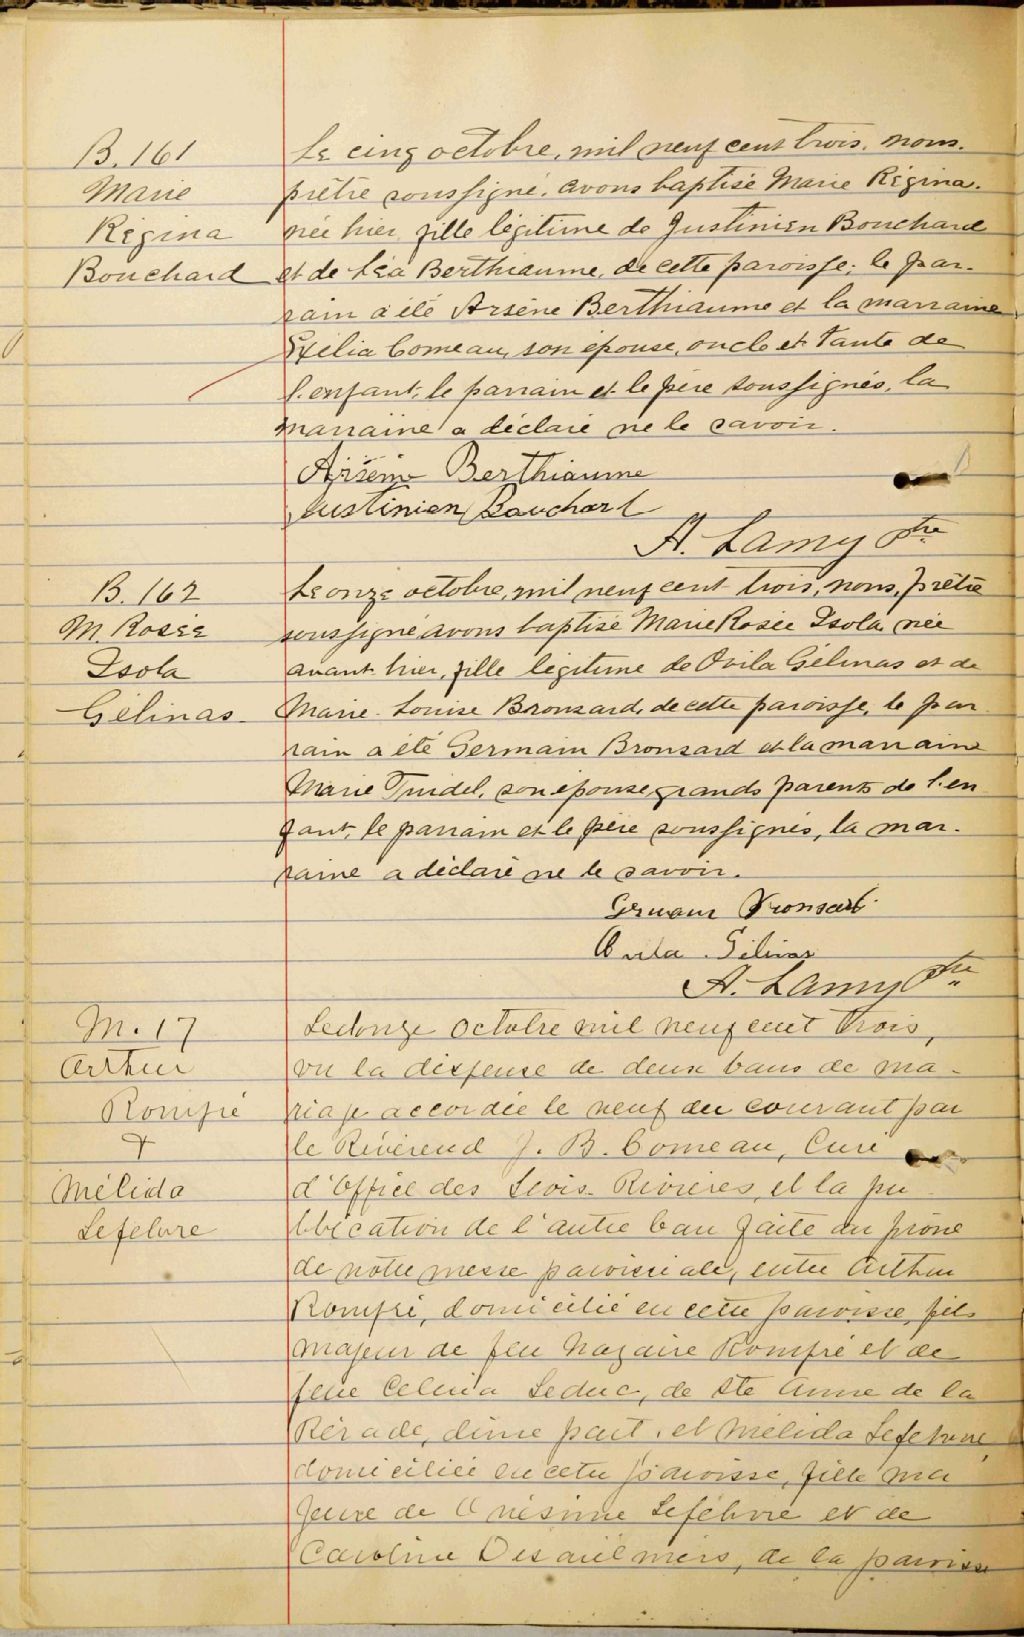 B. 161
Marie
Régina
Bouchard
Le cinq octobre, mil neuf cent trois, nous.
prêtre soussigné, avons baptisé Marie Régina.
née hier, fille légitime de Justinien Bouchard
et de Léa Berthiaume, de cette paroisse; le par-
rain a été Arsène Berthiaume et la marraine
Exilia Comeau, son épouse, oncle et tante de
l'enfant, le parrain et le père soussignés, la
marraine a déclaré ne le savoir.
Arsène Berthiaume
Justinien Bouchard
A. Lamy Ptre
B. 162
M. Rosée
Isola
Gélinas
Le onze octobre, mil neuf cent trois, nous, prêtre
soussigné avons baptisé Marie Rosée Isola, née
avant hier, fille légitime de Ovila Gélinas et de
Marie-Louise Bronsard, de cette paroisse, le par
rain a été Germain Bronsard et la marraine
Marie Trudel, son épouse, grands parents de l'en
fant, le parrain et le père soussignés, la mar-
raine a déclaré ne le savoir.
Germain Bronsard
Ovila Gélinas
A. Lamy Ptre
M. 17
Arthur
Rompré
+
Mélida
Lefebvre
Ledouze octobre mil neuf cent trois,
vu la dispense de deux bans de ma-
riage accordée le neuf du courant par
le Révérend J. B. Comeau, Curé
d'Office des Trois-Rivières, et la pu
blication de l'autre ban faite au prône
de notre messe paroissiale, entre Arthur
Rompré, domicilié en cette paroisse, fils
majeur de feu Nazaire Rompré et de
feue Celina Leduc, de Ste Anne de la
Pérade, d'une part, et Mélida Lefebvre,
domiciliée en cette paroisse, fille ma
jeure de Onésime Lefebvre et de
Caroline Desaulniers, de la paroisse